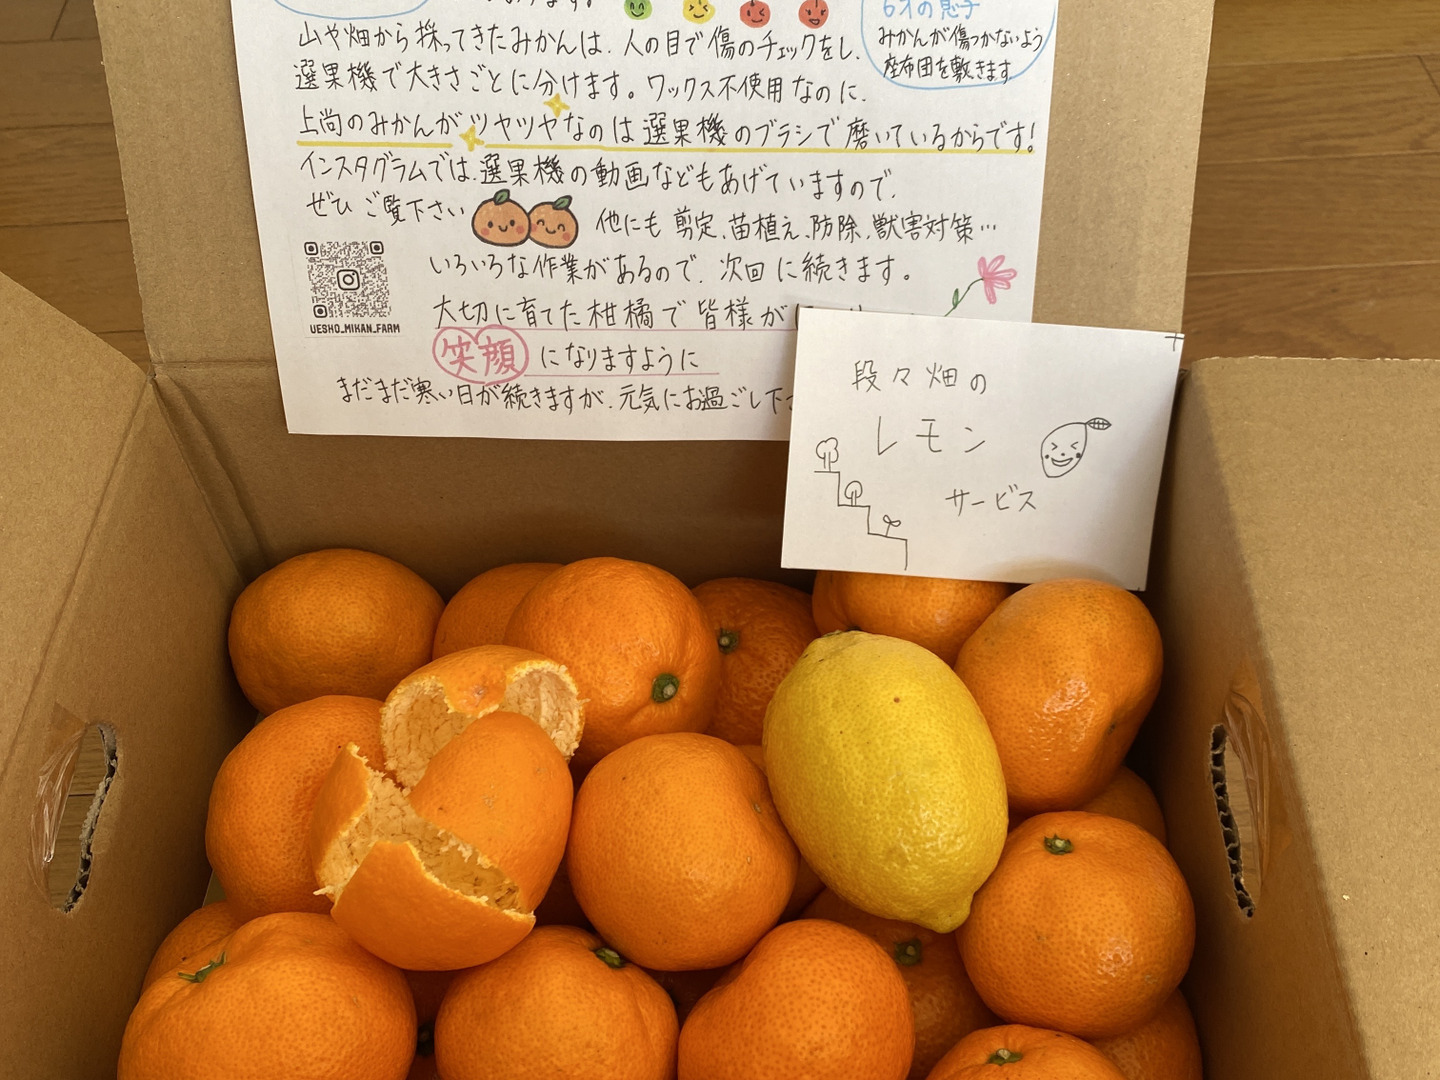 います!
6才の息子
みかんが傷つかないよう
座布団を敷きます
山や畑から採ってきたみかんは、人の目で傷のチェックをし、
選果機で大きさごとに分けます。ワックス不使用なのに、
上尚のみかんがツヤツヤなのは選果機のブラシで磨いているからです!
インスタグラムでは、選果機の動画などもあげていますので、
ぜひご覧下さい
他にも剪定、苗植え、防除、獣害対策…
いろいろな作業があるので、次回に続きます。
UESHO_MIKAN_FARM
大切に育てた柑橘で皆様が
笑顔になりますように
まだまだ寒い日が続きますが、元気にお過ごし下さ
段々畑の
レモン
サービス